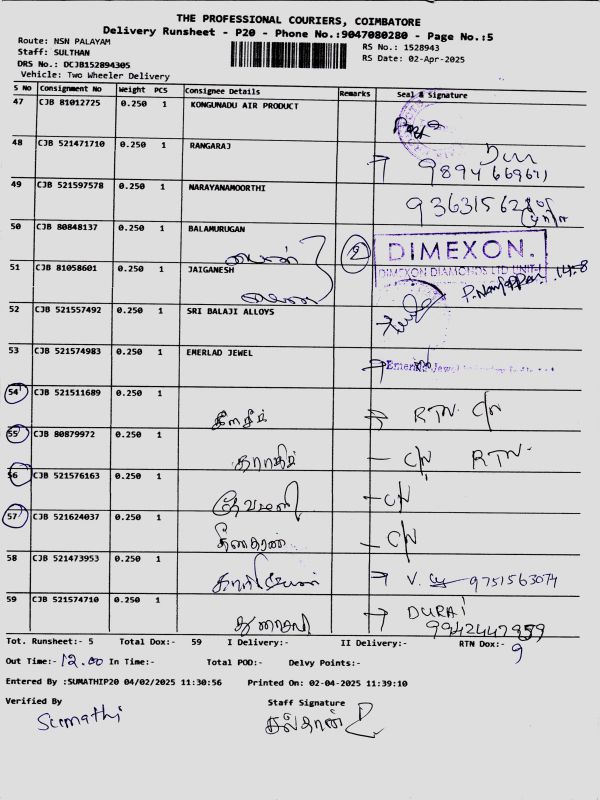 THE PROFESSIONAL COURIERS, COIMBATORE
Delivery Runsheet - P20 - Phone No.:9047080280 - Page No.:5
Route: NSN PALAYAM
Staff: SULTHAN
DRS No.: DCJB152894305
Vehicle: Two Wheeler Delivery
RS No.: 1528943
RS Date: 02-Apr-2025
S No Consignment No Weight PCS Consignee Details Remarks Seal & Signature
47 CJB 81012725 0.250 1 KONGUNADU AIR PRODUCT
48 CJB 521471710 0.250 1 RANGARAJ
49 CJB 521597578 0.250 1 NARAYANAMOORTHI
50 CJB 80848137 0.250 1 BALAMURUGAN
DIMEXON.
DIMEXON DIAMONDS LTD UNIT-I
51 CJB 81058601 0.250 1 JAIGANESH
52 CJB 521557492 0.250 1 SRI BALAJI ALLOYS
53 CJB 521574983 0.250 1 EMERLAD JEWEL
54 CJB 521511689 0.250 1 RTN. C/N
55 CJB 80879972 0.250 1 C/N RTN.
56 CJB 521576163 0.250 1 C/N
57 CJB 521624037 0.250 1 C/N
58 CJB 521473953 0.250 1 V. 9751563074
59 CJB 521574710 0.250 1 துரைசாமி DURAI
9942447959
Tot. Runsheet:- 5 Total Dox:- 59 I Delivery:- II Delivery:- RTN Dox:- 9
Out Time:- 12.00 In Time:- Total POD:- Delvy Points:-
Entered By :SUMATHIP20 04/02/2025 11:30:56 Printed On: 02-04-2025 11:39:10
Verified By Staff Signature
Sumathi சுல்தான்